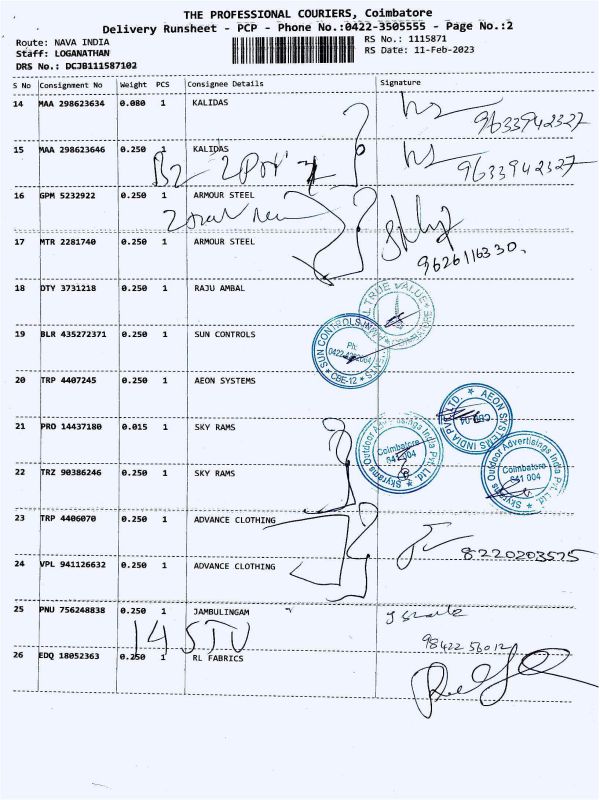 THE PROFESSIONAL COURIERS, Coimbatore
Delivery Runsheet - PCP - Phone No.:0422-3505555 - Page No.:2
Route: NAVA INDIA
RS No.: 1115871
Staff: LOGANATHAN
RS Date: 11-Feb-2023
DRS No.: DCJB111587102
S No Consignment No Weight PCS Consignee Details Signature
14 MAA 298623634 0.080 1 KALIDAS
9633942327
15 MAA 298623646 0.250 1 KALIDAS
9633942327
16 GPM 5232922 0.250 1 ARMOUR STEEL
17 MTR 2281740 0.250 1 ARMOUR STEEL
9626116330.
18 DTY 3731218 0.250 1 RAJU AMBAL
TRUE VALUE
19 BLR 435272371 0.250 1 SUN CONTROLS
SUN CONTROLS
Ph:
CBE-12
20 TRP 4407245 0.250 1 AEON SYSTEMS
AEON SYSTEMS INDIA PVT. LTD.
21 PRO 14437180 0.015 1 SKY RAMS
Skyrams Outdoor Advertisings India Pvt. Ltd.
Coimbatore
641 004
Skyrams Outdoor Advertisings India Pvt. Ltd.
Coimbatore
641 004
22 TRZ 90386246 0.250 1 SKY RAMS
23 TRP 4406070 0.250 1 ADVANCE CLOTHING
8220203575
24 VPL 941126632 0.250 1 ADVANCE CLOTHING
25 PNU 756248838 0.250 1 JAMBULINGAM
26 EDQ 18052363 0.250 1 RL FABRICS